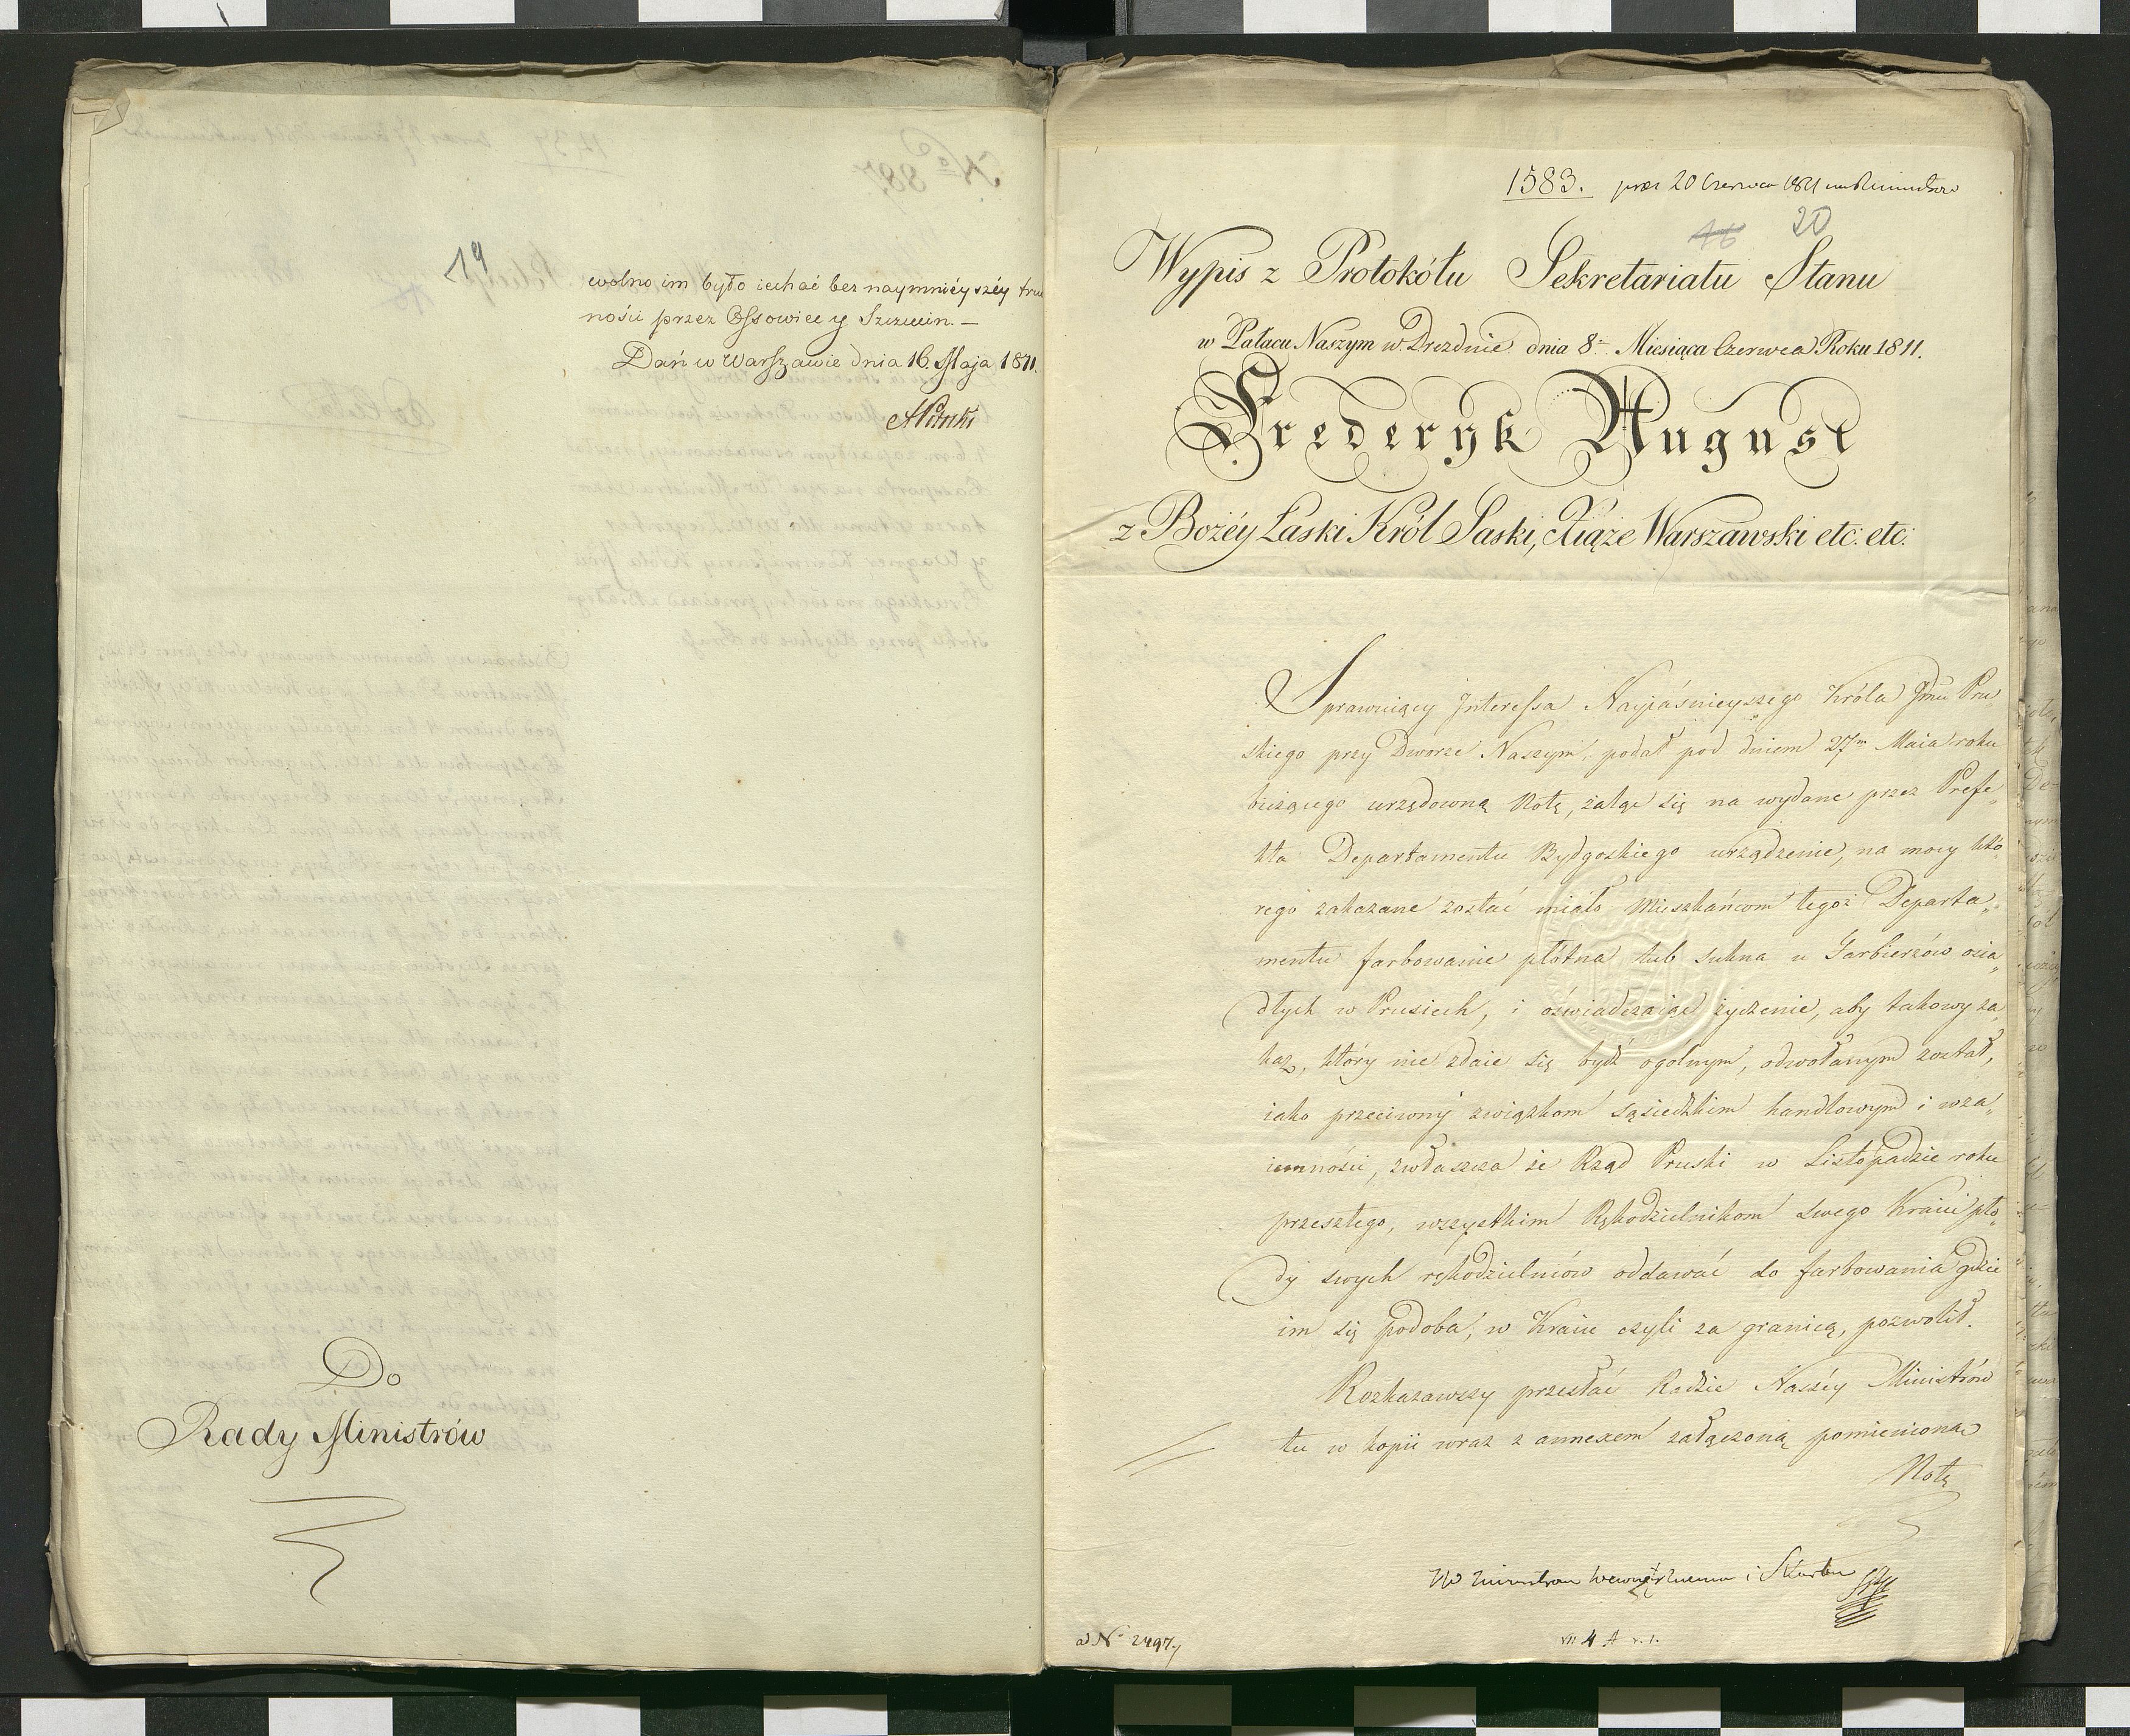 19
wolno im było iechać bez naymnieyszéy tru
ności przez Ossowiec y Szczucin. —
Dań w Warszawie dnia 16. Maja 1811.
Do
Rady Ministrów
1583. 20 Czerwca 1811
16 20
Wypis z Protokółu Sekretariatu Stanu
w Pałacu Naszym w Dreznie dnia 8º Miesiąca Czerwca Roku 1811.
Frederyk August
z Bożéy Łaski Król Saski, Xiąże Warszawski etc: etc:
Sprawuiący Interessa Nayiaśnieyszego Króla Jmci Pru„
skiego przy Dworze Naszym, podał pod dniem 27m Maia roku
bieżącego urzędowną Notę, żaląc się na wydane przez Prefe„
kta Departamentu Bydgoskiego urządzenie, na mocy któ„
rego zakazane zostać miało Mieszkańcom tegoż Departa„
mentu farbowanie płótna lub sukna u Farbierzów osia„
dłych w Prusiech, i oświadczaiąc życzenie, aby takowy za
kaz, który nie zdaie się bydź ogólnym, odwołanym został,
iako przeciwny związkom sąsiedzkim handlowym i wza„
iemności, zwłaszcza że Rząd Pruski w Listopadzie roku
przeszłego, wszystkim Rękodzielnikom swego Kraiu pło„
dy swych rękodzielniów oddawać do farbowania gdzie
im się podoba, w Kraiu czyli za granicą, pozwolił.
Rozkazawszy przesłać Radzie Naszéy Ministrów
tu w kopii wraz z annexem załączoną pomienioną
Notę
i Skarbu
ad Nº 2497.
VII 4 A v. 1.